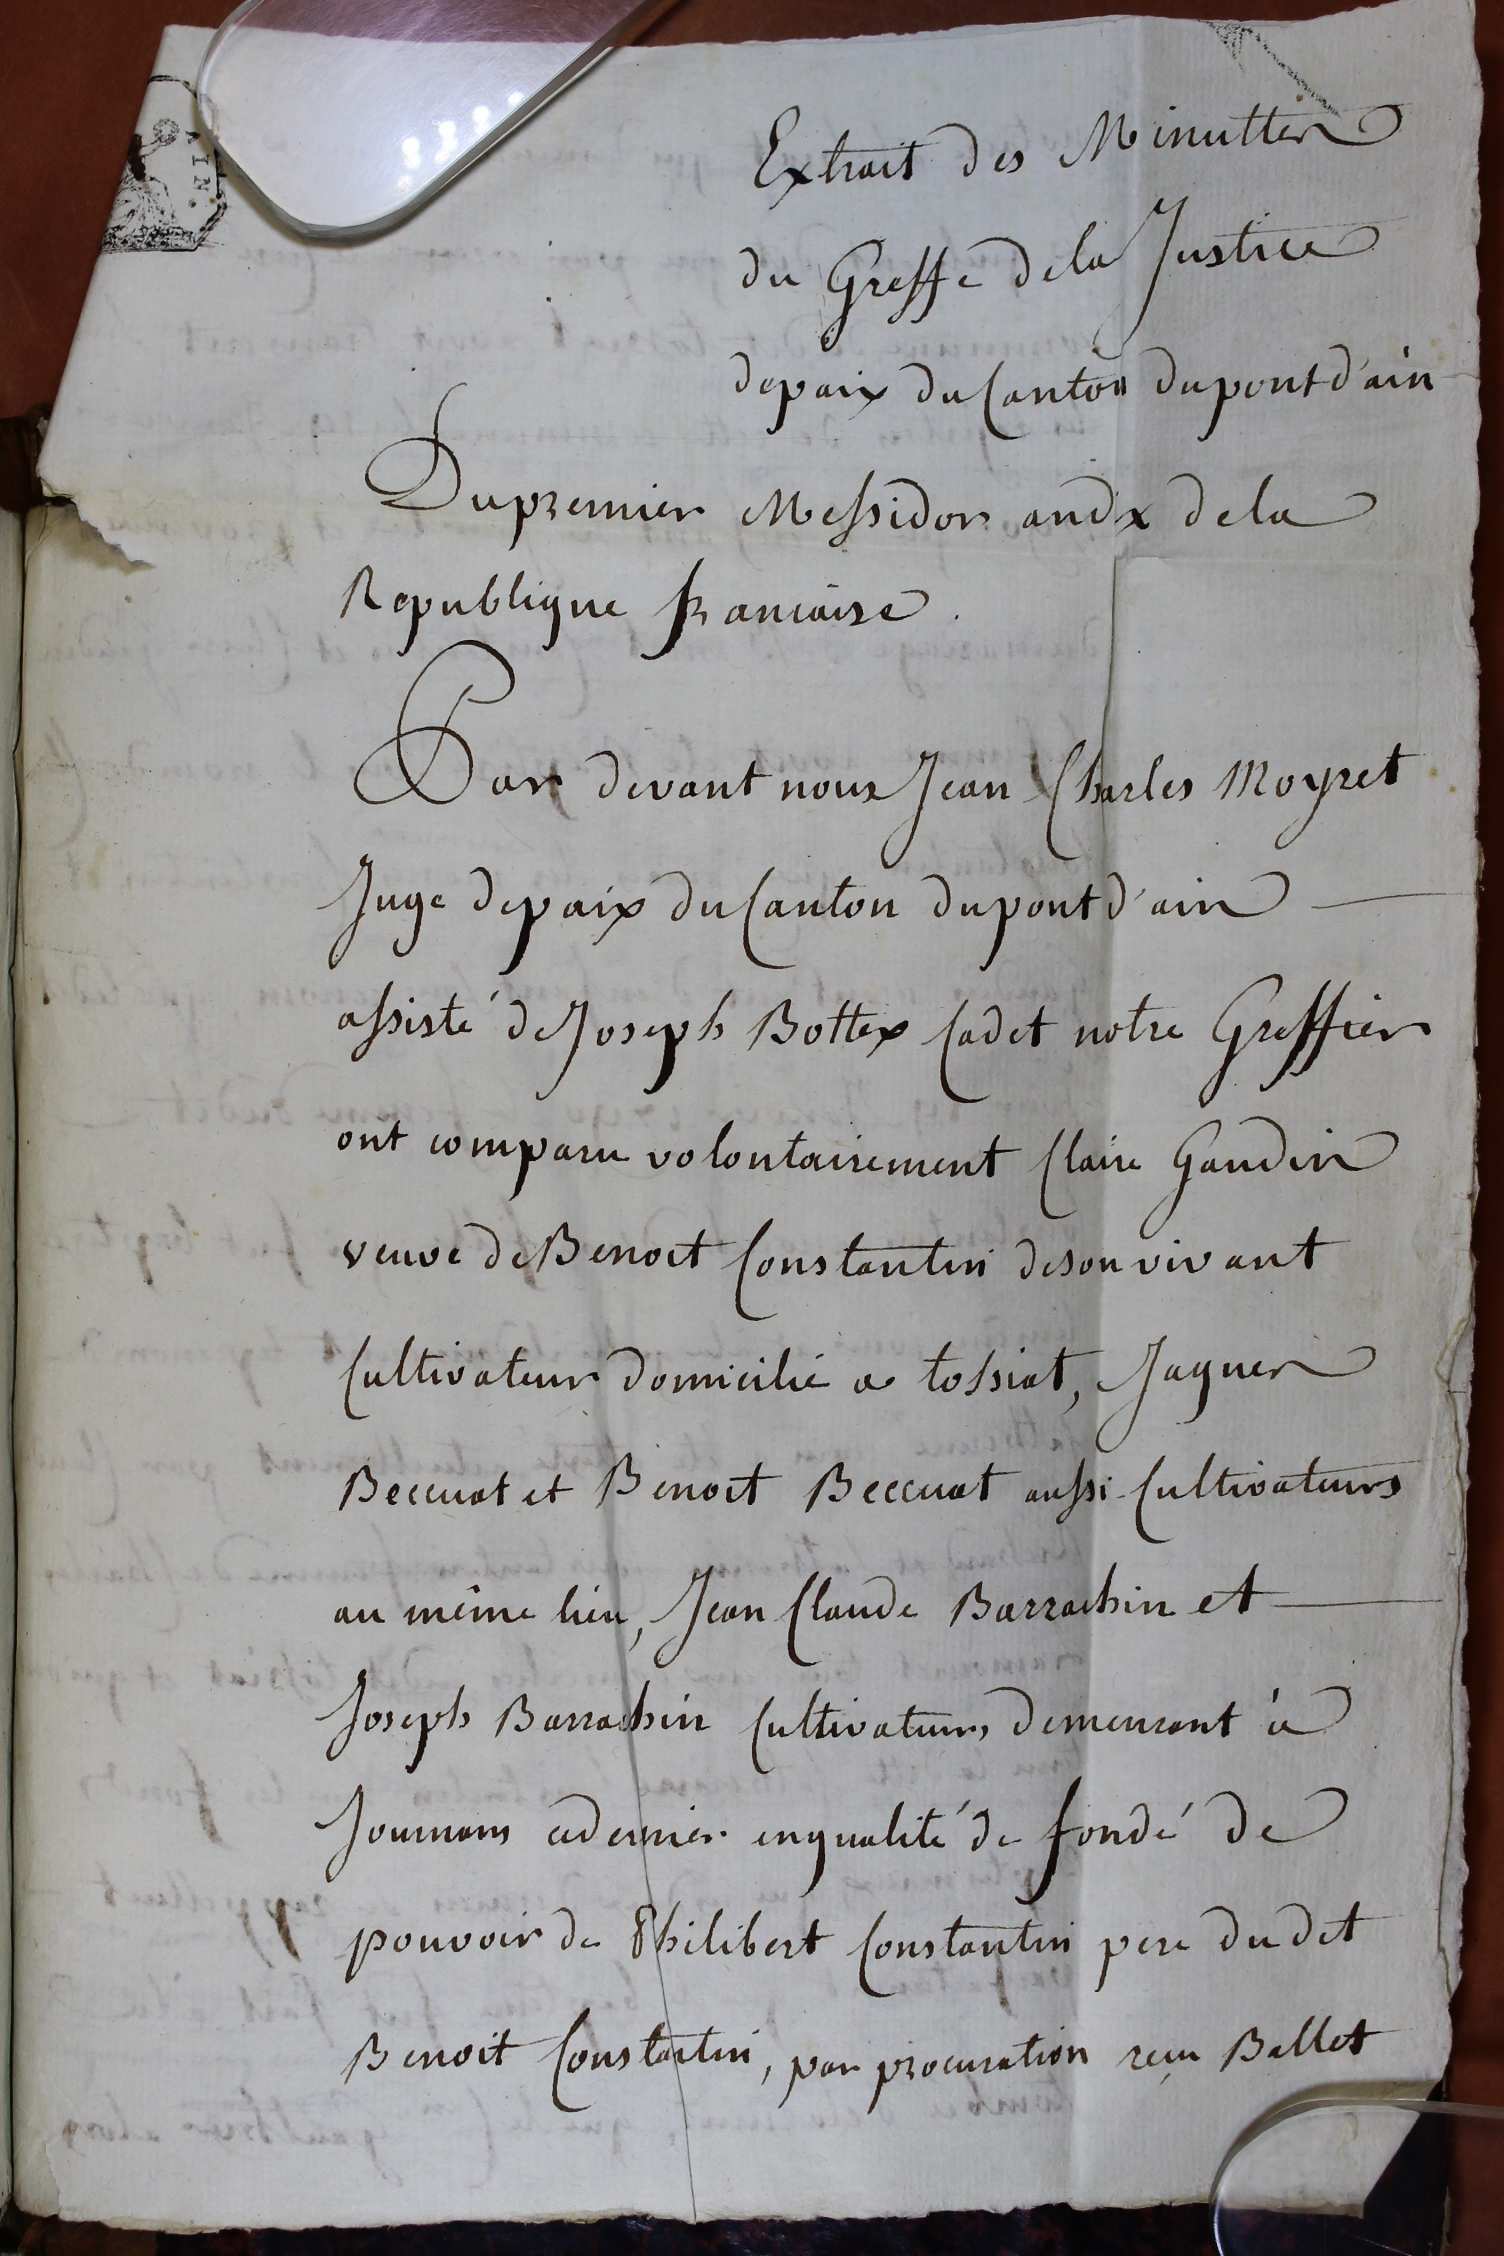 AIN.
Extrait des Minuttes
du Greffe dela Justice
depaix du Canton dupont d'ain
Dupremier Messidor andix dela
Republique francaise.
Par devant nous Jean Charles Moyret
Juge depaix du Canton dupont d'ain
assisté de Joseph Bottex Cadet notre Greffier
ont comparu volontairement Claire Gaudin
veuve de Benoit Constantin desonvivant
Cultivateur domicilié a tossiat, Jaques
Beccuat et Benoit Beccuat aussi Cultivateurs
au même lieu, Jean Claude Barrachin et
Joseph Barrachin Cultivateurs demeurant à
Journans cedernier enqualité de fondé de
pouvoir de Philibert Constantin pere dudit
Benoit Constantin, par procuration reçu Ballet